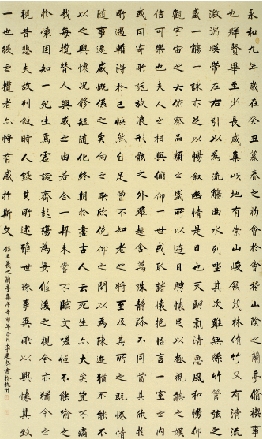 永和九年歲在癸丑暮春之初會于會稽山陰之蘭亭脩禊事
也群賢畢至少長咸集此地有崇山峻領茂林脩竹又有清流
激湍暎帶左右引以為流觴曲水列坐其次雖無絲竹管弦之
盛一觴一詠亦足以暢敘幽情是日也天朗氣清惠風和暢仰
觀宇宙之大俯察品類之盛所以遊目騁懷足以極視聽之娛
信可樂也夫人之相與俯仰一世或取諸懷抱悟言一室之內
或因寄所託放浪形骸之外雖趣舍萬殊靜躁不同當其欣
於所遇蹔得於己快然自足不知老之將至及其所之既惓情
隨事遷感慨係之矣向之所欣俛仰之間以為陳跡猶不能不
以之興懷況脩短隨化終期於盡古人云死生亦大矣豈不痛
哉每攬昔人興感之由若合一契未嘗不臨文嗟悼不能喻之
於懷固知一死生為虛誕齊彭殤為妄作後之視今亦由今之
視昔悲夫故列敘時人錄其所述雖世殊事異所以興懷其致
一也後之攬者亦將有感於斯文